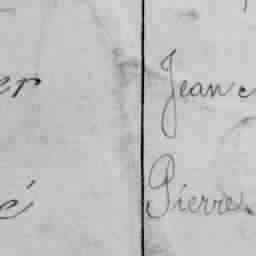 er Jean
é Pierre